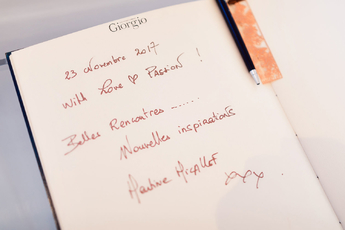 Giorgio
23 Novembre 2017
With Love ♡ Passion !
Belles Rencontres ......
Nouvelles inspirations
Martine Micallef
xxx.